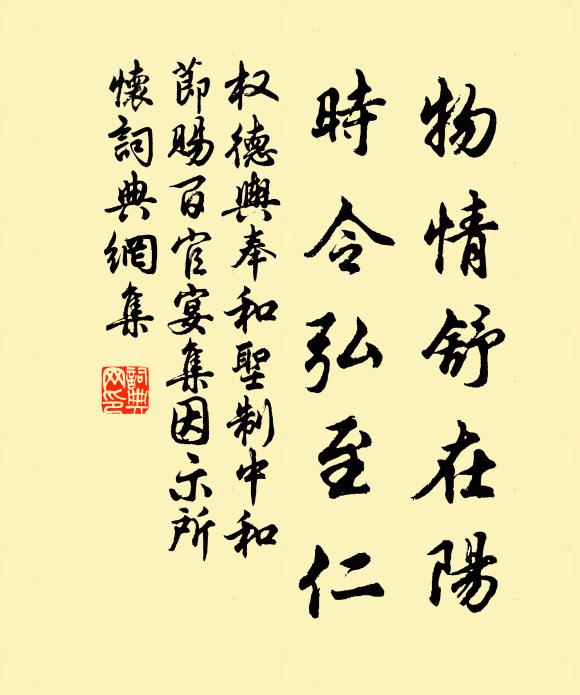 物情舒在陽
時令弘至仁
权德輿奉和聖制中和
節賜百官宴集因示所
懷詞典網集
詞典
网印